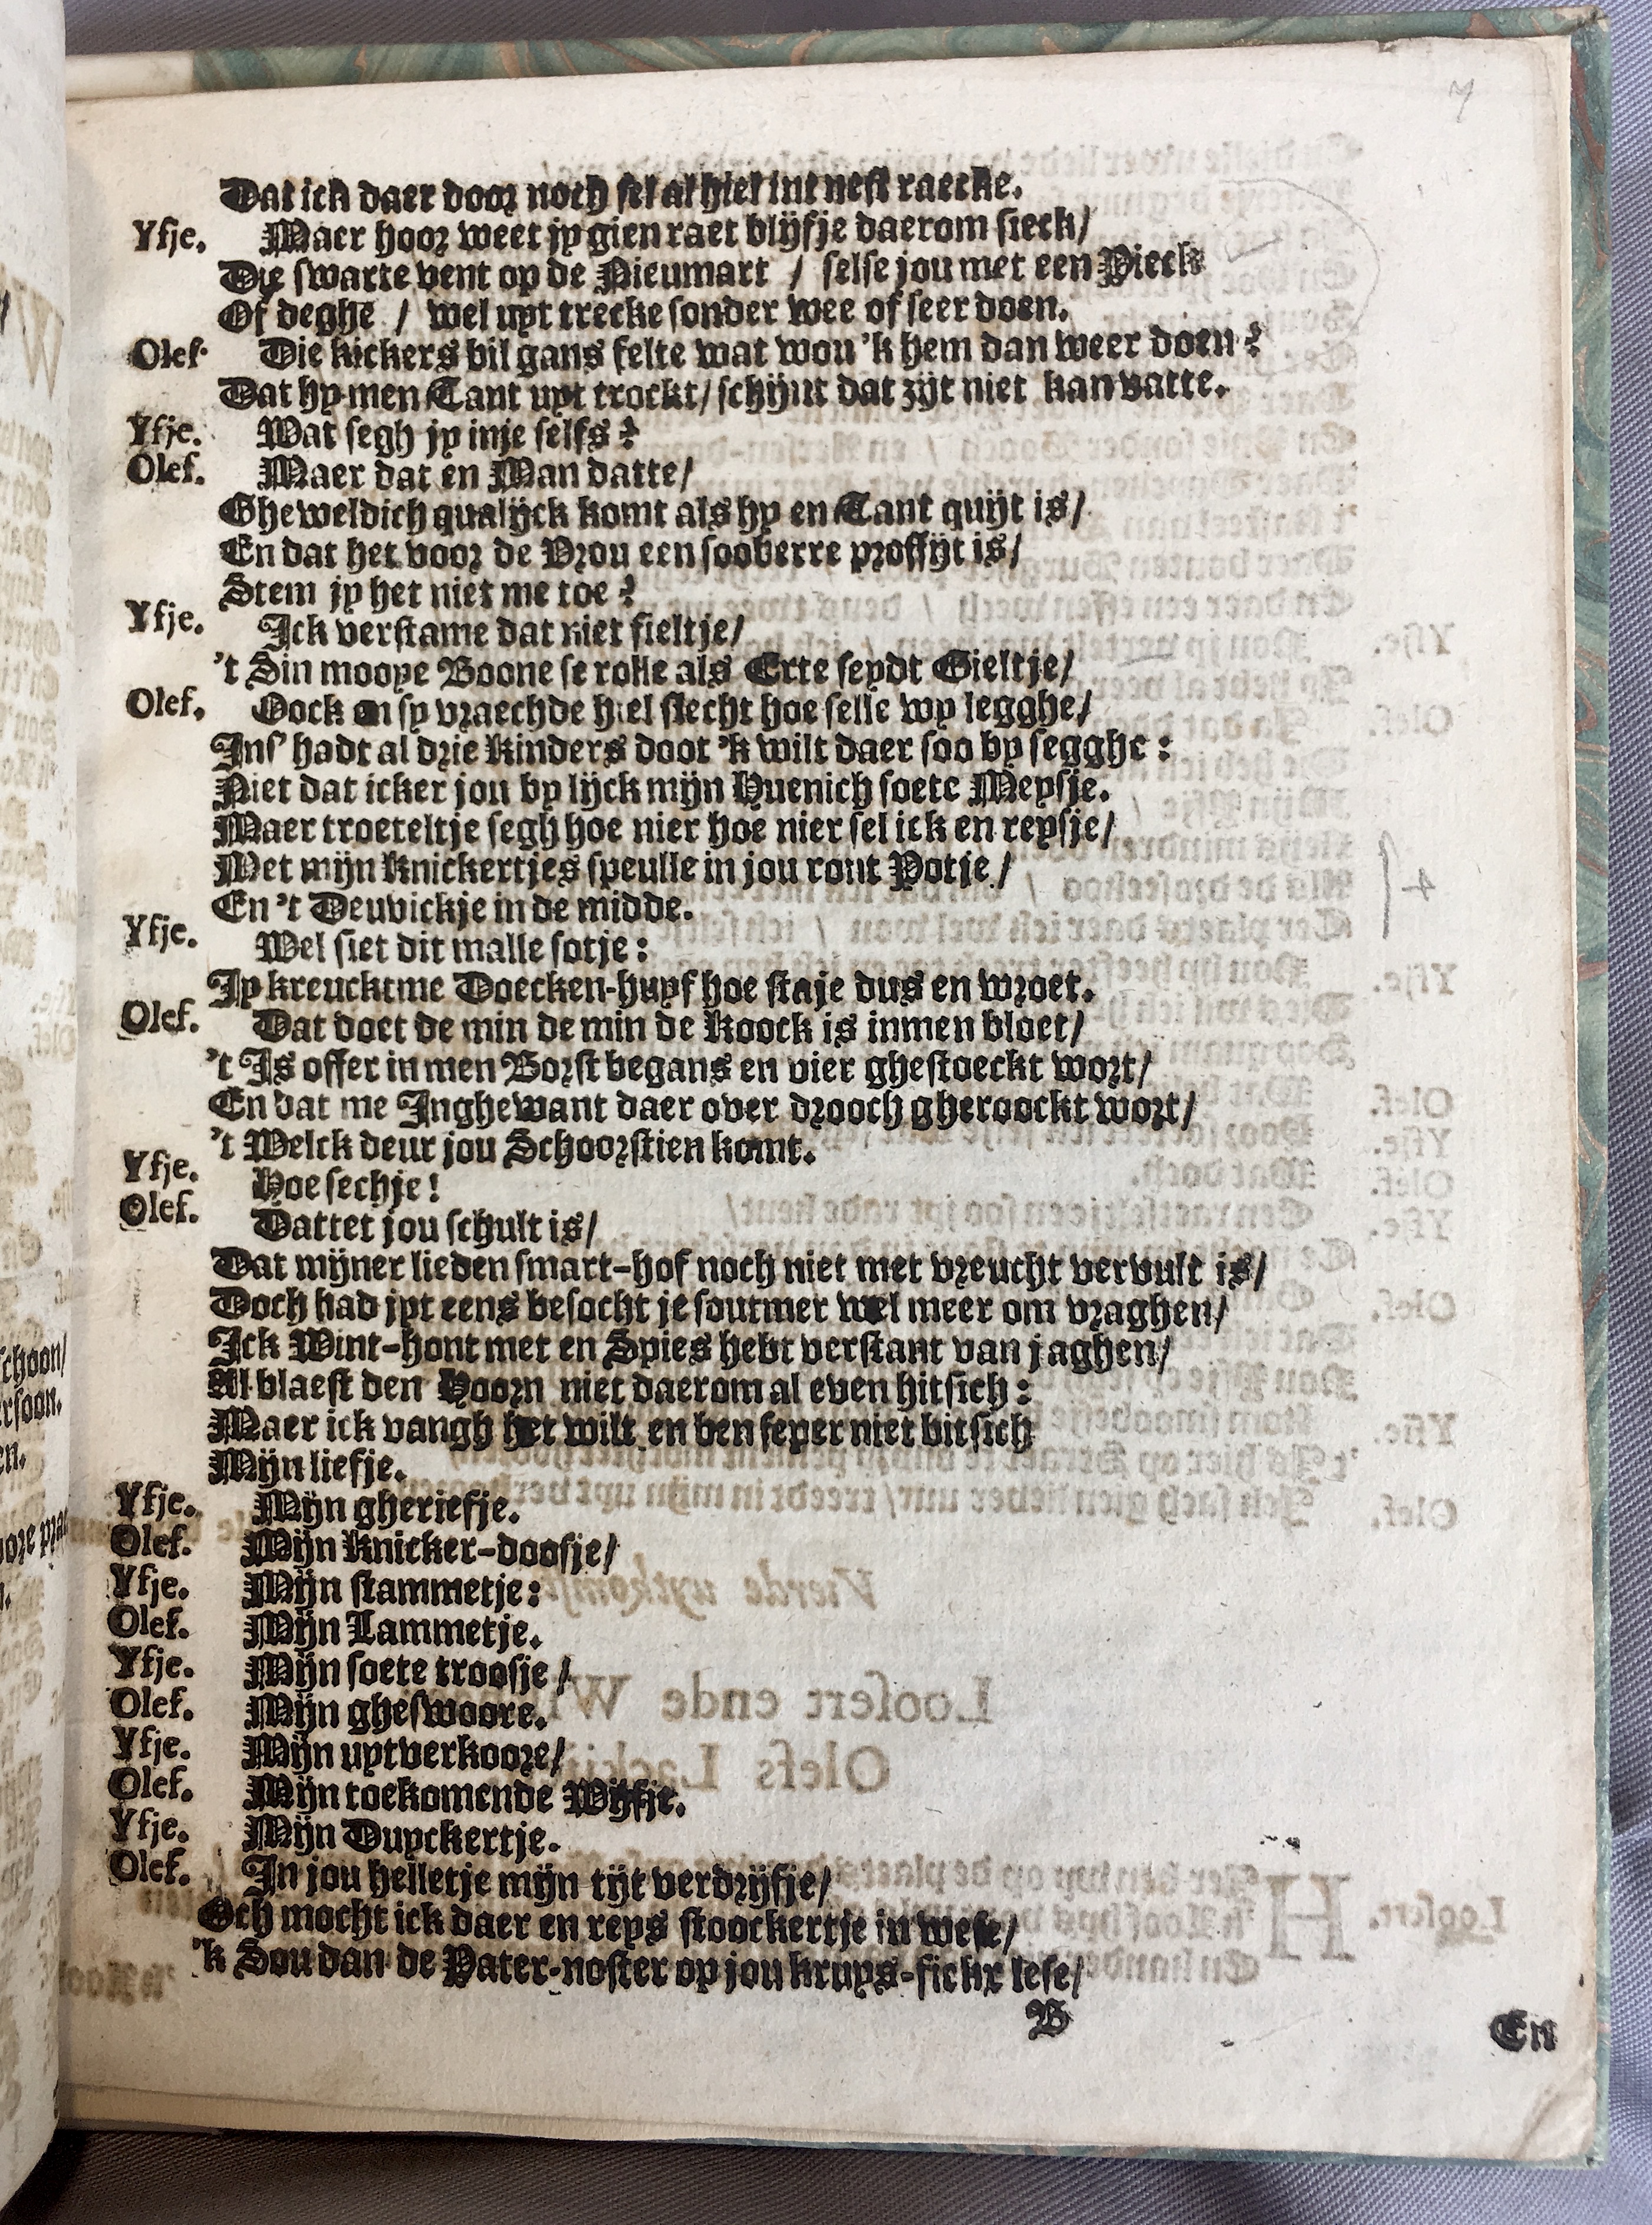 7
Dat ick daer door noch sel al hiel int nest raecke.
Yfje. Maer hoor weet jy gien raet blijfje daerom sieck/
Die swarte vent op de Nieumart / selse jou met een Pieck
Of deghe / wel uyt trecke sonder wee of seer doen.
Olef. Die kickers bil gans felte wat wou 'k hem dan weer doen?
Dat hy men Tant uyt trockt/ schijnt dat zijt niet kan vatte.
Yfje. Wat segh jy inje selfs?
Olef. Maer dat en Man datte/
Gheweldich qualijck komt als hy en Tant quijt is/
En dat het voor de Vrou een sooberre proffijt is/
Stem jy het niet me toe?
Yfje. Ick verstame dat niet fieltje/
't Sin mooye Boone se rolle als Erte seydt Gieltje/
Olef. Oock en sy vraechde hiel slecht hoe selle wy legghe/
Ins' hadt al drie Kinders doot 'k wilt daer soo by segghe:
Niet dat icker jou by lijck mijn Huenich soete Meysje.
Maer troeteltje segh hoe nier hoe nier sel ick en reysje/
Met mijn Knickertjes speulle in jou ront Potje/
En 't Deuvickje in de midde.
Yfje. Wel siet dit malle sotje:
Jy kreucktme Doecken-huyf hoe staje dus en wroet.
Olef. Dat doet de min de min de Koock is inmen bloet/
't Is offer in men Borst begans en vier ghestoeckt wort/
En dat me Inghewant daer over drooch gheroockt wort/
't Welck deur jou Schoorstien komt.
Yfje. Hoe sechje!
Olef. Dattet jou schult is/
Dat mijner lieden smart-hof noch niet met vreucht vervult is/
Doch had jpt eens besocht je soutmer wel meer om vraghen/
Ick Wint-hont met en Spies hebt verstant van jaghen/
Al blaest den Hoorn niet daerom al even hitsich:
Maer ick vangh het wilt en ben seper niet bitsich
Mijn liefje.
Yfje. Mijn gheriefje.
Olef. Mijn Knicker-doosje/
Yfje. Mijn stammetje:
Olef. Mijn Lammetje.
Yfje. Mijn soete troosje/
Olef. Mijn gheswoore.
Yfje. Mijn uytverkoore/
Olef. Mijn toekomende Wijfje.
Yfje. Mijn Duyckertje.
Olef. In jou helletje mijn tijt verdrijfje/
Och mocht ick daer en reys stoockertje in wese/
'k Sou dan de Pater-noster op jou kruys-fickx lese/
B
En